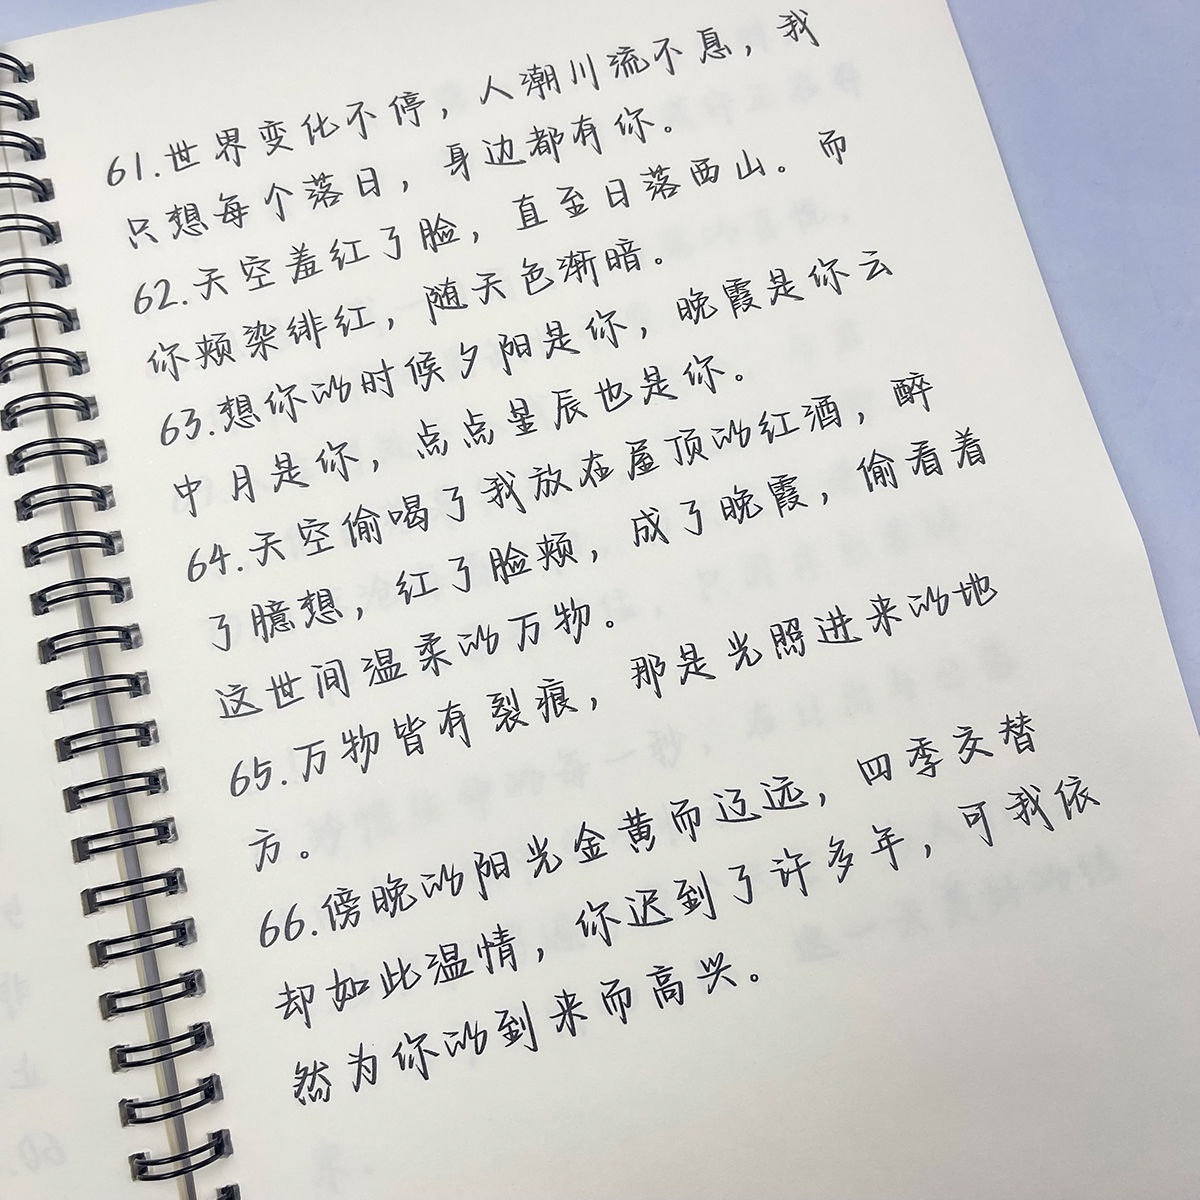 61.世界变化不停，人潮川流不息，我
只想每个落日，身边都有你。
62.天空羞红了脸，直至日落西山。而
你颊染绯红，随天色渐暗。
63.想你的时候夕阳是你，晚霞是你云
中月是你，点点星辰也是你。
64.天空偷喝了我放在屋顶的红酒，醉
了臆想，红了脸颊，成了晚霞，偷看着
这世间温柔的万物。
65.万物皆有裂痕，那是光照进来的地
方。
66.傍晚的阳光金黄而辽远，四季交替
却如此温情，你迟到了许多年，可我依
然为你的到来而高兴。
60.